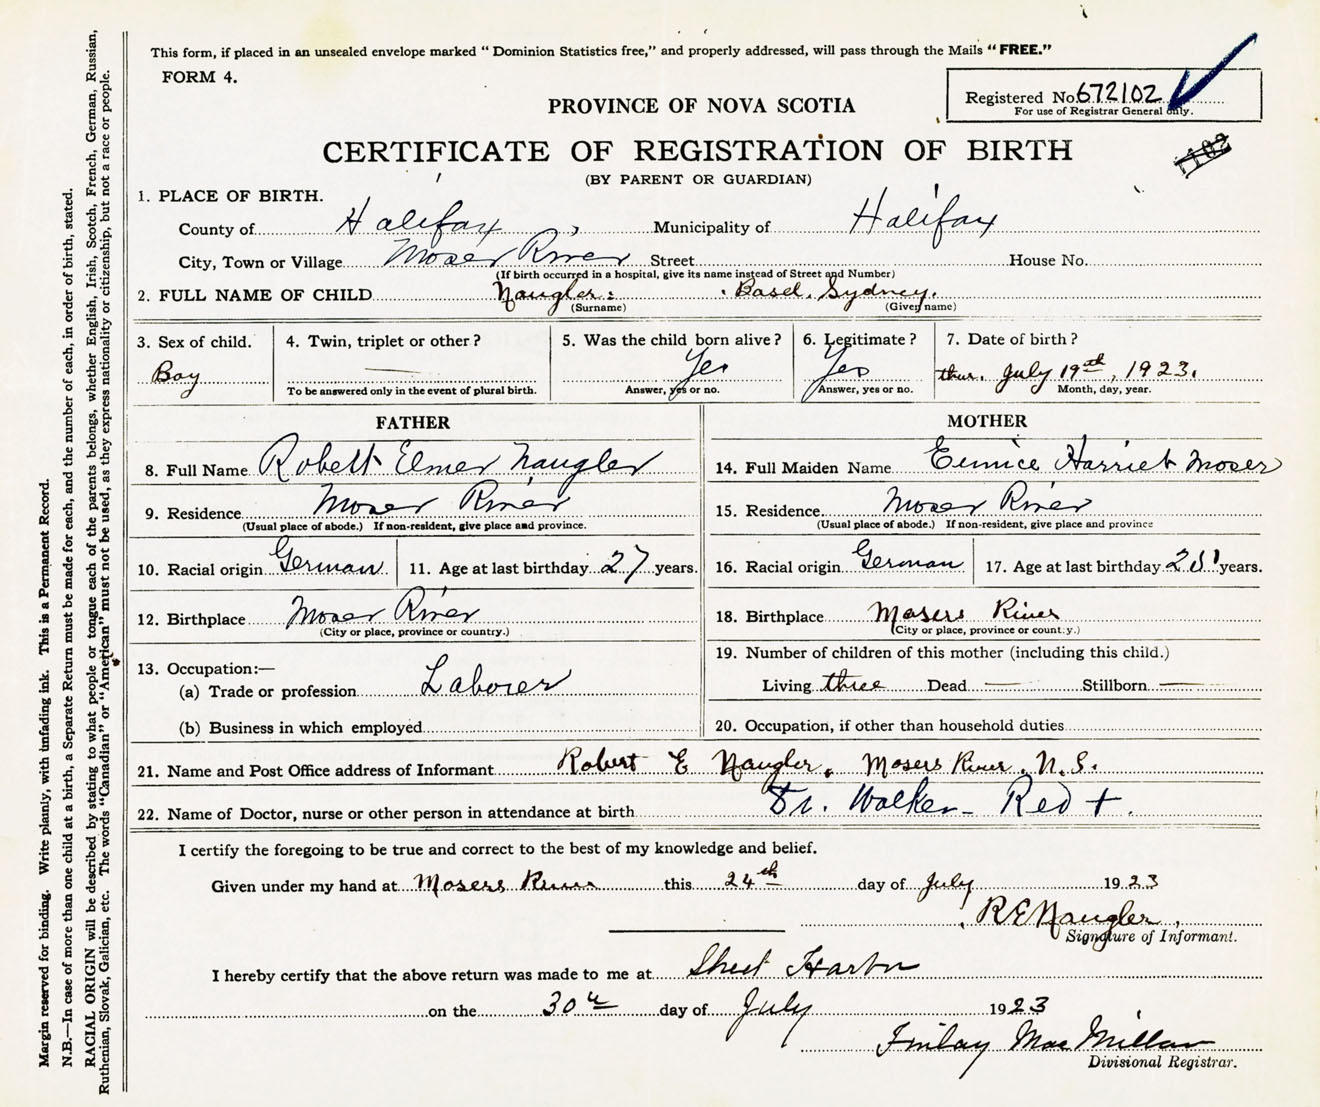 This form, if placed in an unsealed envelope marked “Dominion Statistics free,” and properly addressed, will pass through the Mails “FREE.”
FORM 4.
Registered No. 672102
For use of Registrar General only.
PROVINCE OF NOVA SCOTIA
1102
CERTIFICATE OF REGISTRATION OF BIRTH
(BY PARENT OR GUARDIAN)
1. PLACE OF BIRTH.
County of Halifax, Municipality of Halifax
City, Town or Village Moser River Street House No.
(If birth occurred in a hospital, give its name instead of Street and Number)
2. FULL NAME OF CHILD Naugler: Basel. Sydney.
(Surname) (Given name)
3. Sex of child. 4. Twin, triplet or other? 5. Was the child born alive? 6. Legitimate? 7. Date of birth?
Boy — Yes Yes thur. July 19th, 1923.
To be answered only in the event of plural birth. Answer, yes or no. Answer, yes or no. Month, day, year.
FATHER
8. Full Name Robert Elmer Naugler
9. Residence Moser River
(Usual place of abode.) If non-resident, give place and province.
10. Racial origin German 11. Age at last birthday 27 years.
12. Birthplace Moser River
(City or place, province or country.)
13. Occupation:—
(a) Trade or profession Laborer
(b) Business in which employed
MOTHER
14. Full Maiden Name Eunice Harriet Moser
15. Residence Moser River
(Usual place of abode.) If non-resident, give place and province
16. Racial origin German 17. Age at last birthday years.
18. Birthplace Mosers River
(City or place, province or county.)
19. Number of children of this mother (including this child.)
Living three Dead — Stillborn —
20. Occupation, if other than household duties
21. Name and Post Office address of Informant Robert E Naugler, Mosers River, N.S.
22. Name of Doctor, nurse or other person in attendance at birth Dr. Walker - Red +.
I certify the foregoing to be true and correct to the best of my knowledge and belief.
Given under my hand at Mosers River this 24th day of July 1923
R E Naugler
Signature of Informant.
I hereby certify that the above return was made to me at Sheet Harbor
on the 30th day of July 1923
Finlay MacMillan
Divisional Registrar.
Margin reserved for binding. Write plainly, with unfading ink. This is a Permanent Record.
N.B.—In case of more than one child at a birth, a Separate Return must be made for each, and the number of each, in order of birth, stated.
RACIAL ORIGIN will be described by stating to what people or tongue each of the parents belongs, whether English, Irish, Scotch, French, German, Russian,
Ruthenian, Slovak, Galician, etc. The words “Canadian” or “American” must not be used, as they express nationality or citizenship, but not a race or people.